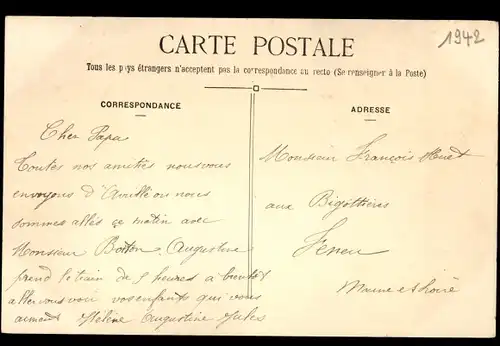 1942
CARTE POSTALE
Tous les pays étrangers n'acceptent pas la correspondance au recto (Se renseigner à la Poste)
CORRESPONDANCE
ADRESSE
Cher Papa
Toutes nos amitiés nous vous
envoyons d'Avrillé ou nous
sommes allés ce matin avec
Monsieur Augustine
prend le train de 5 heures a bientôt
aller vous voir vos enfants qui vous
aiment Hélène Augustine Jules
Monsieur François Huet
aux Bigottières
Feneu
Maine et Loire